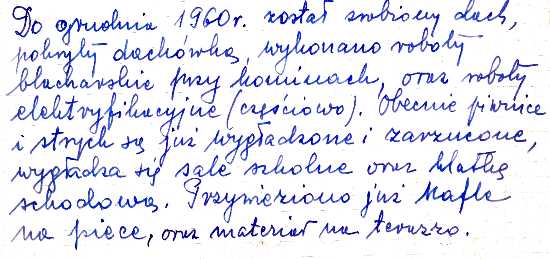 Do grudnia 1960r. został zrobiony dach,
pokryty dachówką, wykonano roboty
blacharskie przy kominach, oraz roboty
elektryfikacyjne (częściowo). Obecnie piwnice
i strych są już wygładzone i zarzucone,
wygładza się sale szkolne oraz klatkę
schodową. Przywieziono już kafle
na piece, oraz materiał na terazzo.